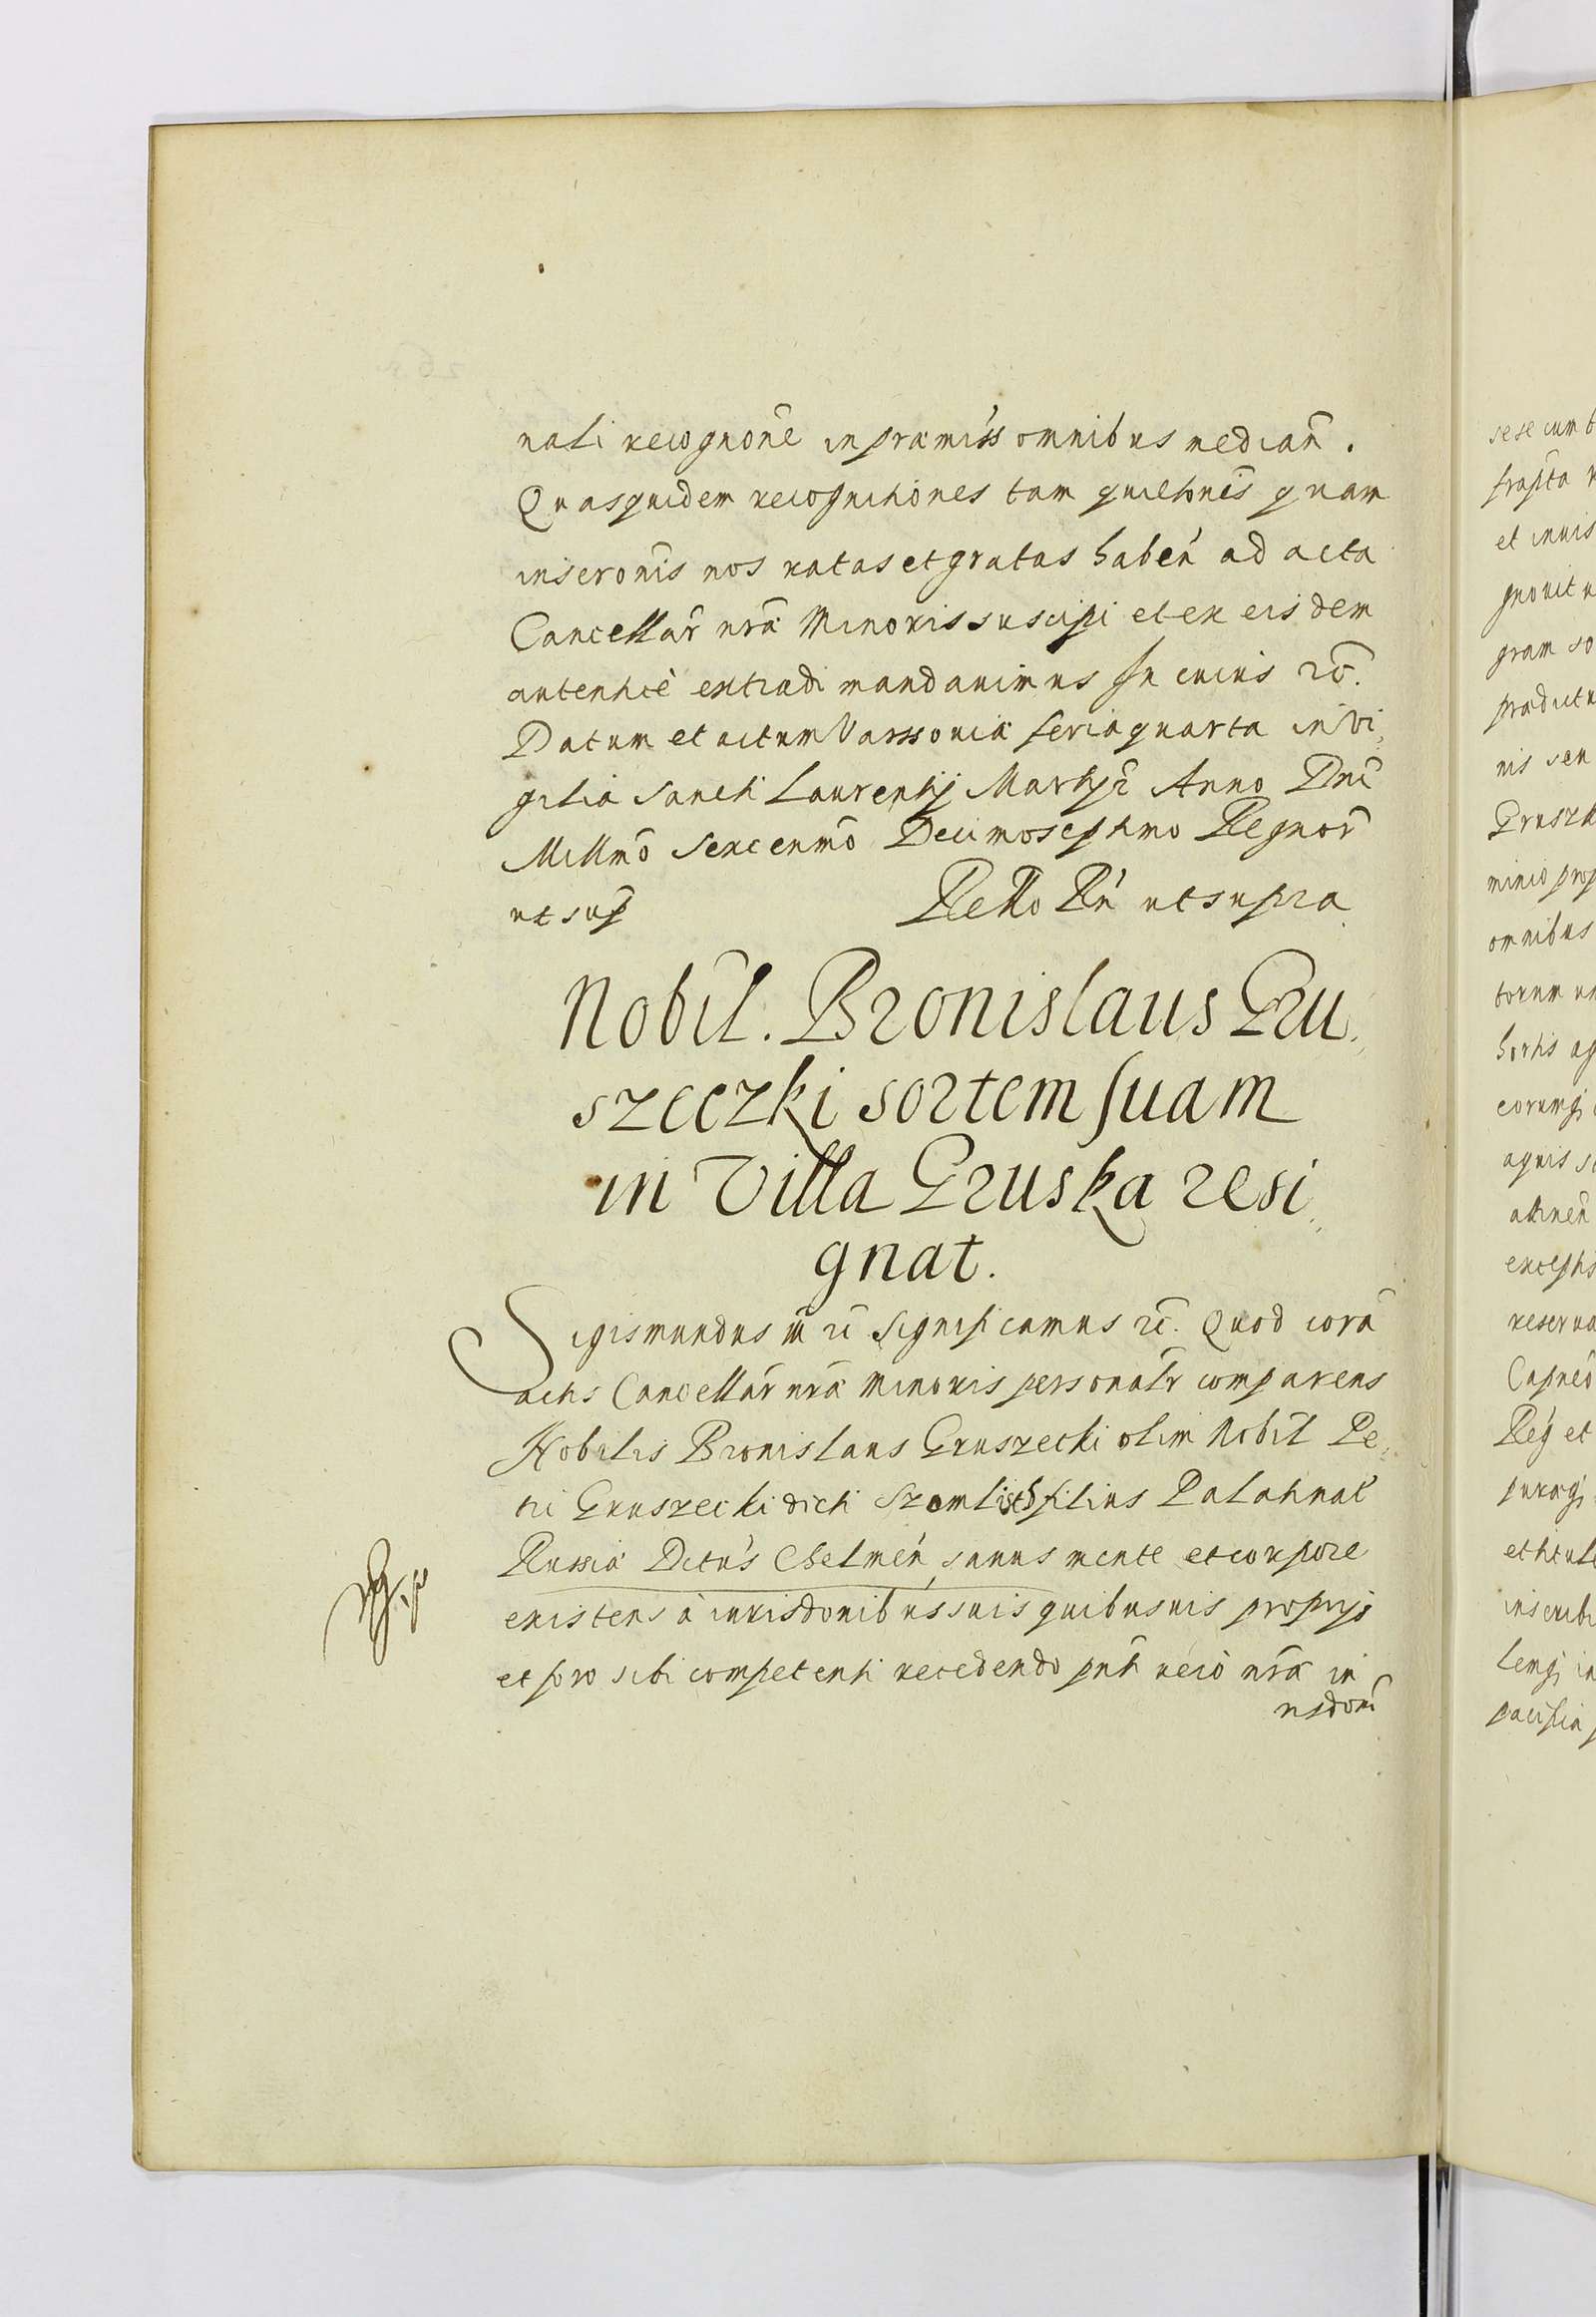 nali recognone in præmiss omnibus median̄.
Quasquidem recognitiones tam quietonis̄ quam
inscronis̄ nos ratas et gratas haben̄ ad acta
Cancellar̄ nr̄æ Minoris suscipi et ex eisdem
autenticè extradi mandavimus In cuius rei
Datum et actum Varssoviæ feria quarta in Vi„
gilia Sancti Laurentij Martyr̄ Anno Dnī
Millm̄o Sexcenm̄o Decimoseptimo Regnor̄
ut sup̄ Rello Rn̄ ut supra
Nobil. Bronislaus Gru„
szeczki sortem suam
in Villa Gruska resi„
gnat.
Sigismundus III rc̄ Significamus rc̄. Quod corā
actis Cancellar̄ nr̄æ Minoris personalr̄ comparens
Nobilis Bronislaus Gruszecki olim Nobil̄ Pe„
tri Gruszecki dicti filius Palatinat̄
Russiæ Dctūs Chelmen̄ sanus mente et corpore
existens à iurisdonib̄us suis quibusvis proprijs
et foro sibi competenti recedendo pn̄ti vero nr̄æ iu
risdoni̅
sese cum b
et inuis
gnouit
gram so
prædictu
nis seu
Gruszk
minio prop
omnibus
torum
hortis ag
eorumq;
agnis
attinen̄
exceptis
reserua
Capneo
Reg et
puraq;
et titulo
inscribi
temq; in
pacifica